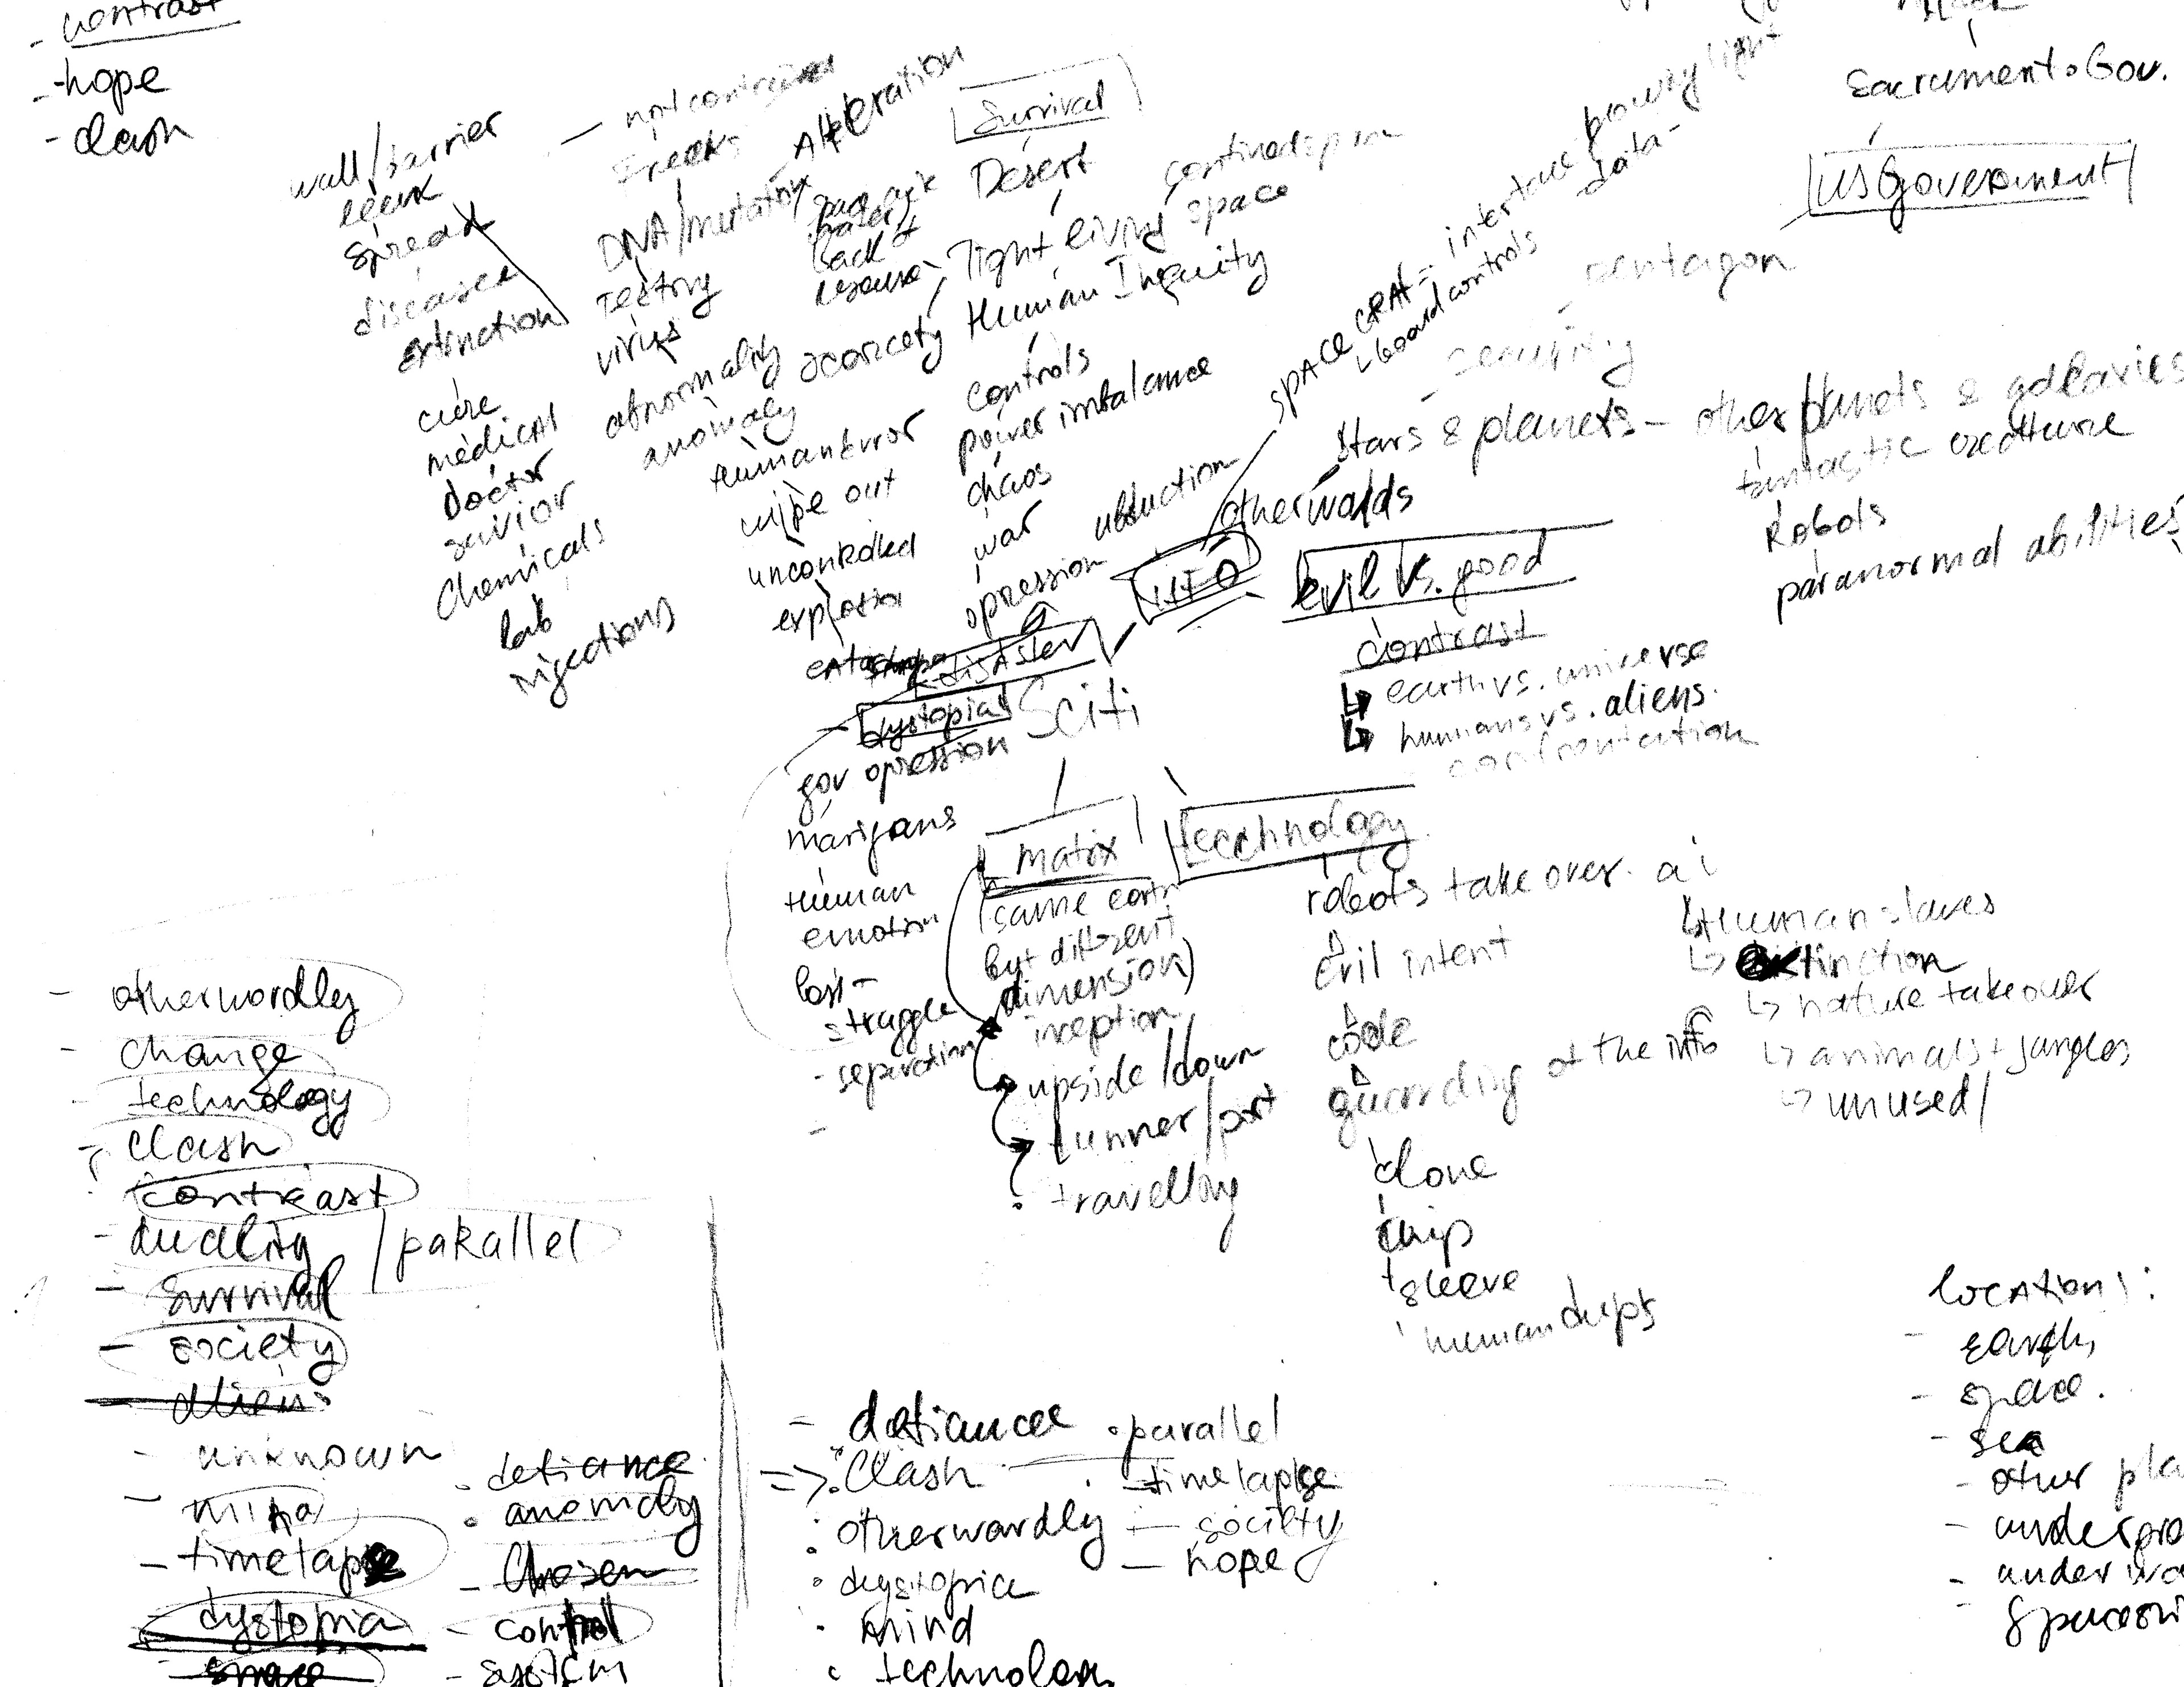 - contrast
- hope
- clash
wall/barrier
spread
diseases
extinction
cure
medical
Doctor
savior
Chemicals
lab
injections
Freaks
DNA/mutation
Testing
virus
abnormality
anomaly
Alteration
Survival
Desert
lack of
tight living space
scarcety
Human Inequity
controls
power imbalance
chaos
war
opression
abduction
human error
wipe out
uncontrolled
explosion
disaster
dystopia
Scifi
gov opression
human
emotion
lost
- struggle
- separation
UFO
otherworlds
SPACE CRAFT - interface
board controls
data -
Sacrament. Gov.
US Government
pentagon
security
stars & planets - other planets & galaxies
fantastic creature
Robots
paranormal abilities
evil vs. good
contrast
↳ earth vs. universe
↳ humans vs. aliens.
confrontation
matrix
(same earth
but different
dimension)
inception
upside/down
travelling
technology
robots take over. ai
evil intent
code
guarding of the info
clone
chip
sleeve
↳ Human slaves
↳ extinction
↳ nature takeover
↳ animals + jungles
↳ unused/
- otherwordly
- change
- technology
- clash
contrast
- duality / parallel
- survival
- society
- aliens
- unknown
- mind
- timelapse
- dystopia
- space
. defiance
. anomaly
- Chosen
- control
- system
- defiance
. parallel
=> . Clash
- timelapse
. otherwardly
- society
- hope
. dystopia
. mind
. technology
location:
- earth,
- space.
- sea
- other pla
- undergro
- underwa